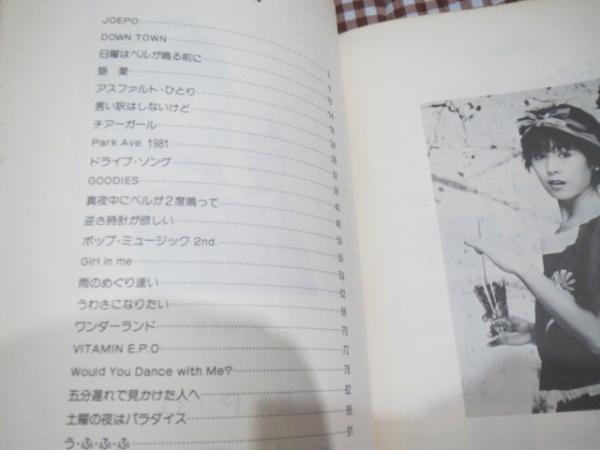 JOEPO
DOWN TOWN
日曜はベルが鳴る前に 5
語 愛
アスファルト・ひとり 10
言い訳はしないけど 14
チアーガール
Park Ave. 1981
ドライブ・ソング
GOODIES 36
真夜中にベルが2度鳴って 40
逆さ時計が欲しい 45
ポップ・ミュージック 2nd. 50
Girl in me 56
雨のめぐり逢い 59
うわさになりたい 62
ワンダーランド 70
VITAMIN E.P.O 72
Would You Dance with Me? 78
五分遅れで見かけた人へ 82
土曜の夜はパラダイス 88
う・ふ・ふ・ふ 91